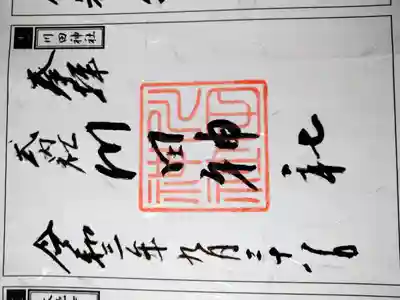 川田神社
奉拝
式内社 川田神社
令和三年九月